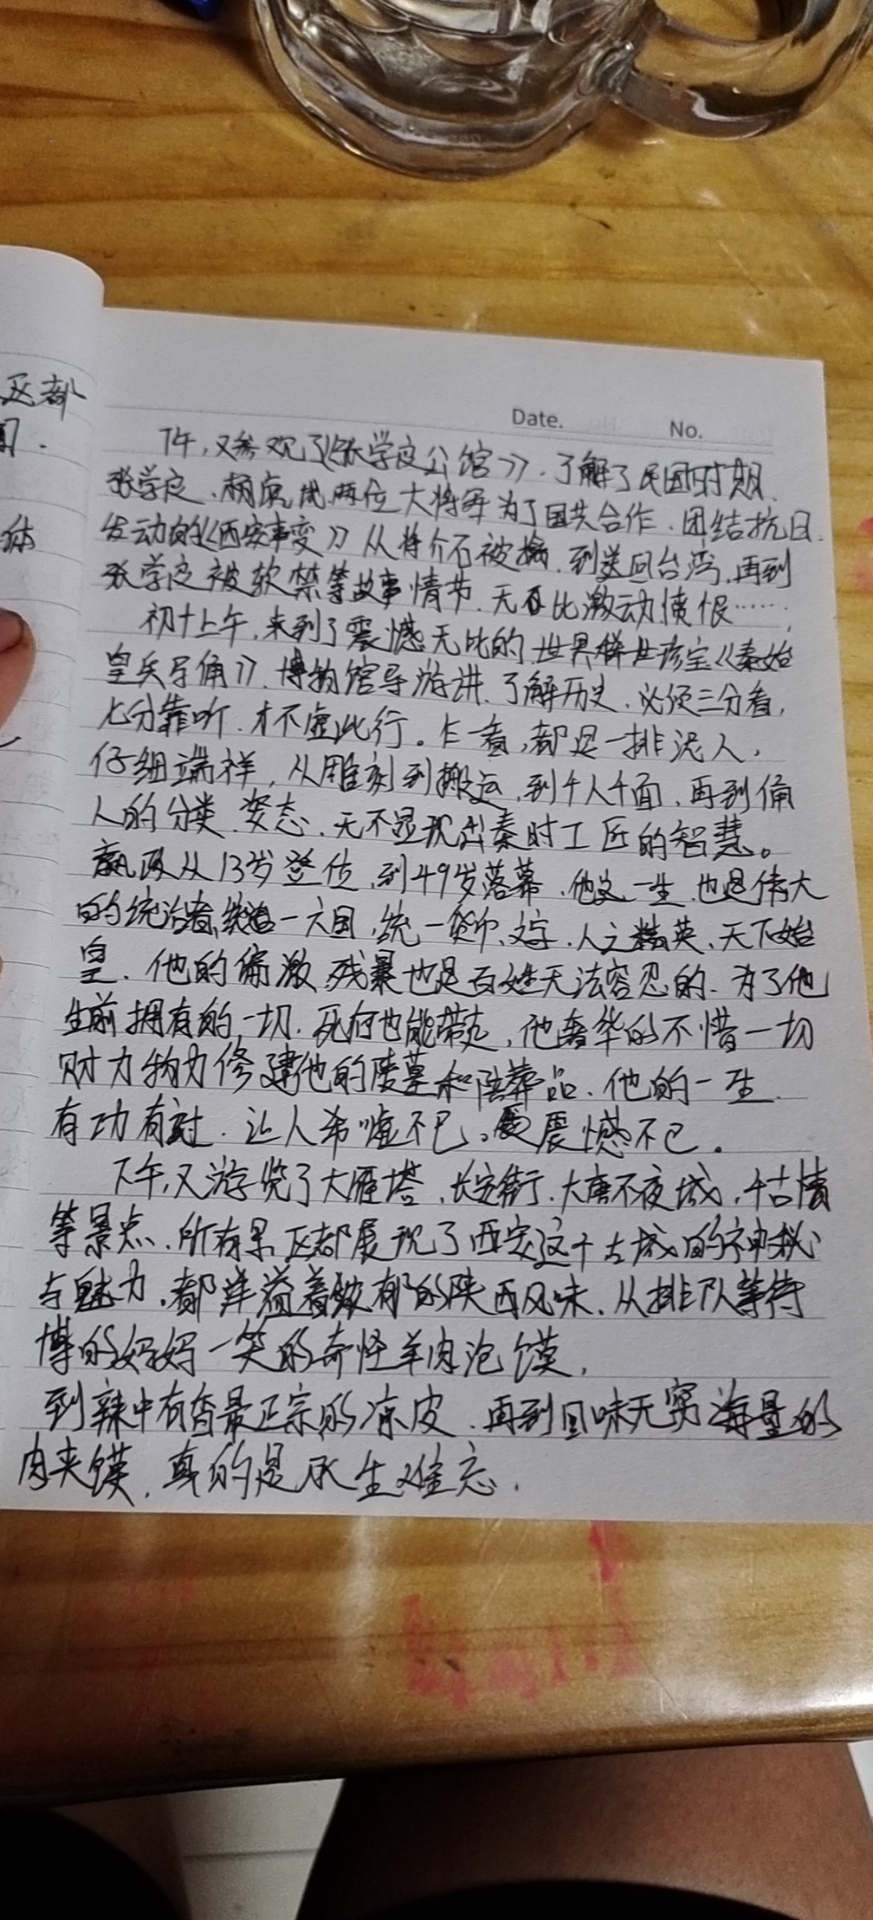 区都
Date.
No.
下午,又参观了《张学良公馆》.了解了民国时期.
张学良、杨虎城两位大将军为了国共合作.团结抗日.
发动的《西安事变》从蒋介石被擒.到送回台湾,再到
张学良被软禁等故事情节.无不比激动愤恨……
初十上午,来到了震憾无比的世界稀世珍宝《秦始
皇兵马俑》.博物馆导游讲.了解历史.必须三分看,
七分靠听.才不虚此行。乍一看,都是一排泥人,
仔细端祥,从雕刻到搬运,到千人千面.再到俑
人的分类.姿态.无不显现出秦时工匠的智慧。
嬴政从13岁登位,到49岁落幕.他这一生.也是伟大
的统治者,统一六国,统一货币、文字.人之精英、天下始
皇.他的偏激,残暴也是百姓无法容忍的.为了他
生前拥有的一切.死后也能带走,他奢华的不惜一切
财力物力修建他的陵墓和陪葬品.他的一生.
有功有过.让人希嘘不已。震憾不已.
下午,又游览了大雁塔,长安街.大唐不夜城,千古情
等景点.所有景区都展现了西安这个古城的神秘
与魅力.都洋溢着敥郁的陕西风味.从排队等待
博的妈妈一笑的奇怪羊肉泡馍,
到辣中有香最正宗的凉皮.再到回味无穷海量的
肉夹馍.真的是永生难忘.